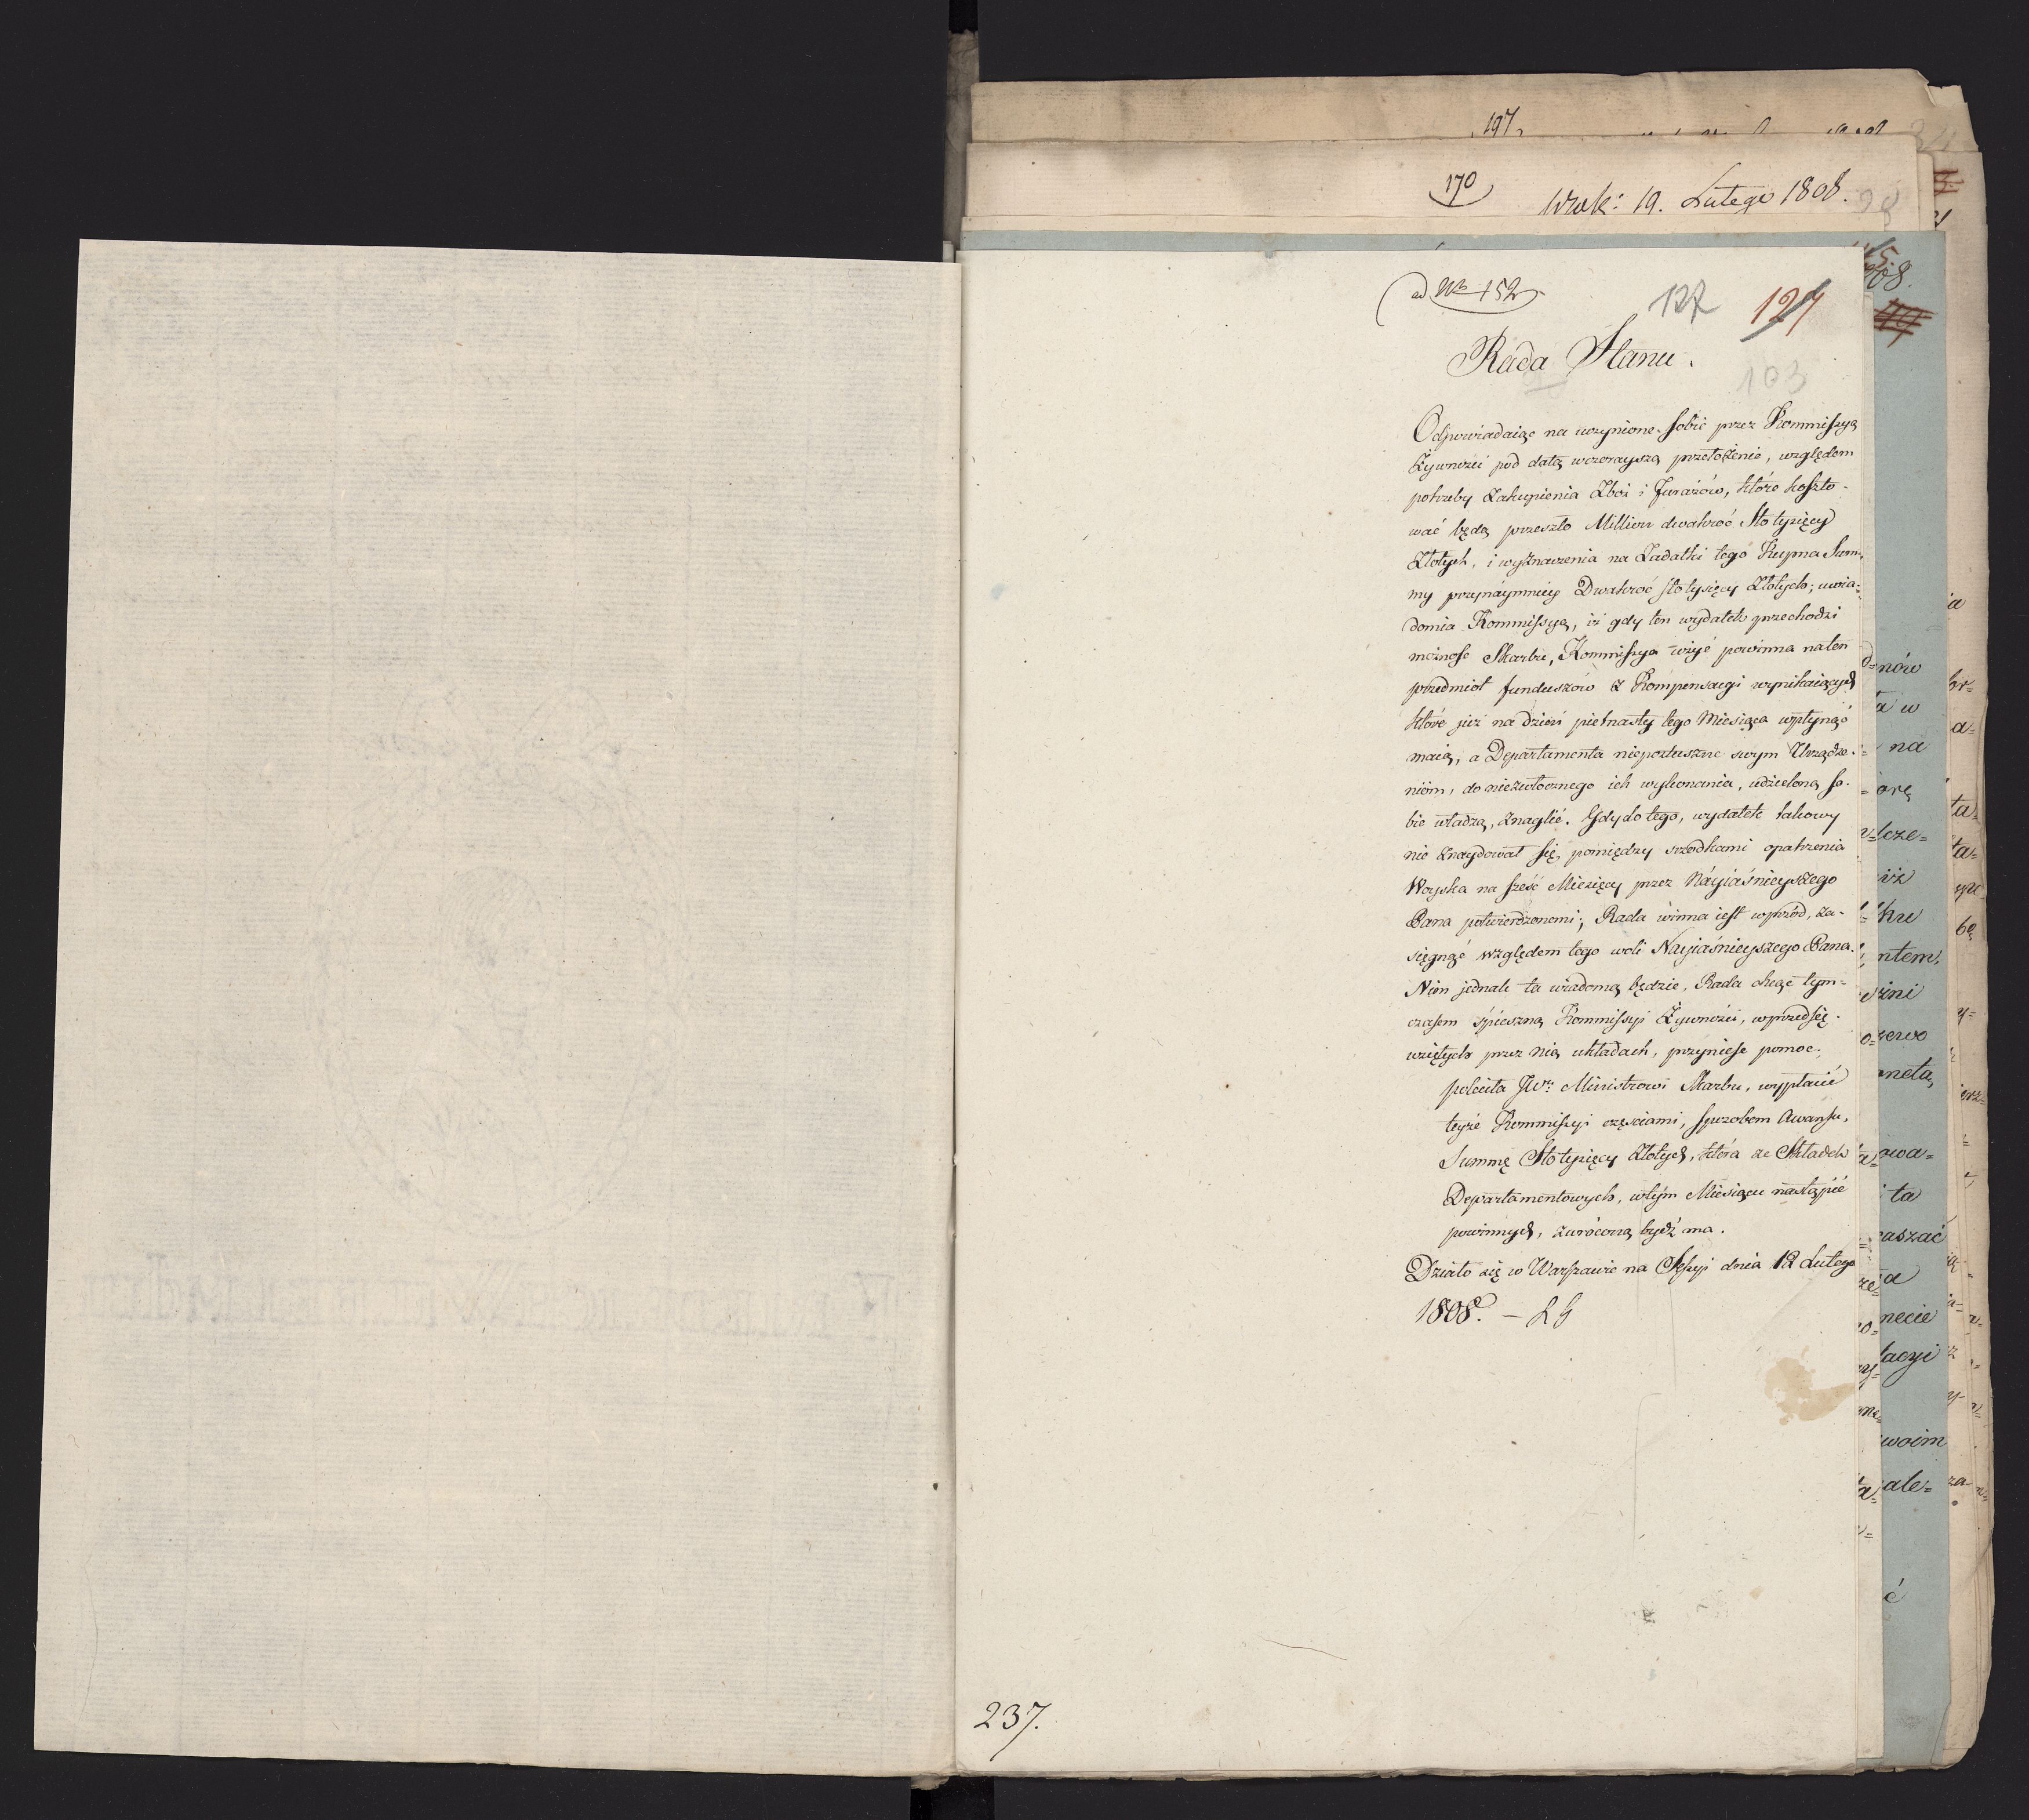 197
170
Wrok: 19. Lutego 1808.
ad Nro 152
127 127
Rada Stanu.
103
Odpowiadaiąc na uczynione sobie przez Kommissyą
Żywności pod datą wczorayszą przełożenie, względem
potrzeby Zakupienia Zboż i Furażów, które koszto-
wać będą przeszło Million dwakroć Sto tysięcy
Złotych, i wyznaczenia na Zadatki tego Kupna Sum-
my przynáymniey Dwakroć sto tysięcy Złotych; uwia-
domia Kommissyą, iż gdy ten wydatek przechodzi
możność Skarbu, Kommissya użyć powinna na ten
przedmiot funduszów z Kompensacyi wynikaiących
które już na dzień piętnasty tego Miesiąca wpłynąć
maią, a Departamenta nieposłuszne swym Urządze-
niom, do niezwłocznego ich wykonania, udzieloną so-
bie władzą, znaglić. Gdy do tego, wydatek takowy
nie znaydował się, pomiędzy srzodkami opatrzenia
Woyska na sześć Miesięcy przez Náyiaśnieyszego
Pana potwierdzonemi; Rada winna iest wprzód, za-
sięgnąć względem tego woli Nayiaśnieyszego Pana.
Nim jednak ta wiadomą będzie, Rada chcąc tym-
czasem śpieszną Kommissyi Żywności, w przedsię-
wziętych przez nią układach, przynieść pomoc,
poleciła JWu Ministrowi Skarbu, wypłacić
teyże Kommissyi częściami, sposobem Awansu,
Summę Sto tysięcy Złotych, która ze Składek
Departamentowych, w tym Miesiącu nastąpić
powinnych, zwróconą bydź ma.
Działo się w Warszawie na Sessyi dnia 12 Lutego
1808. —
237.